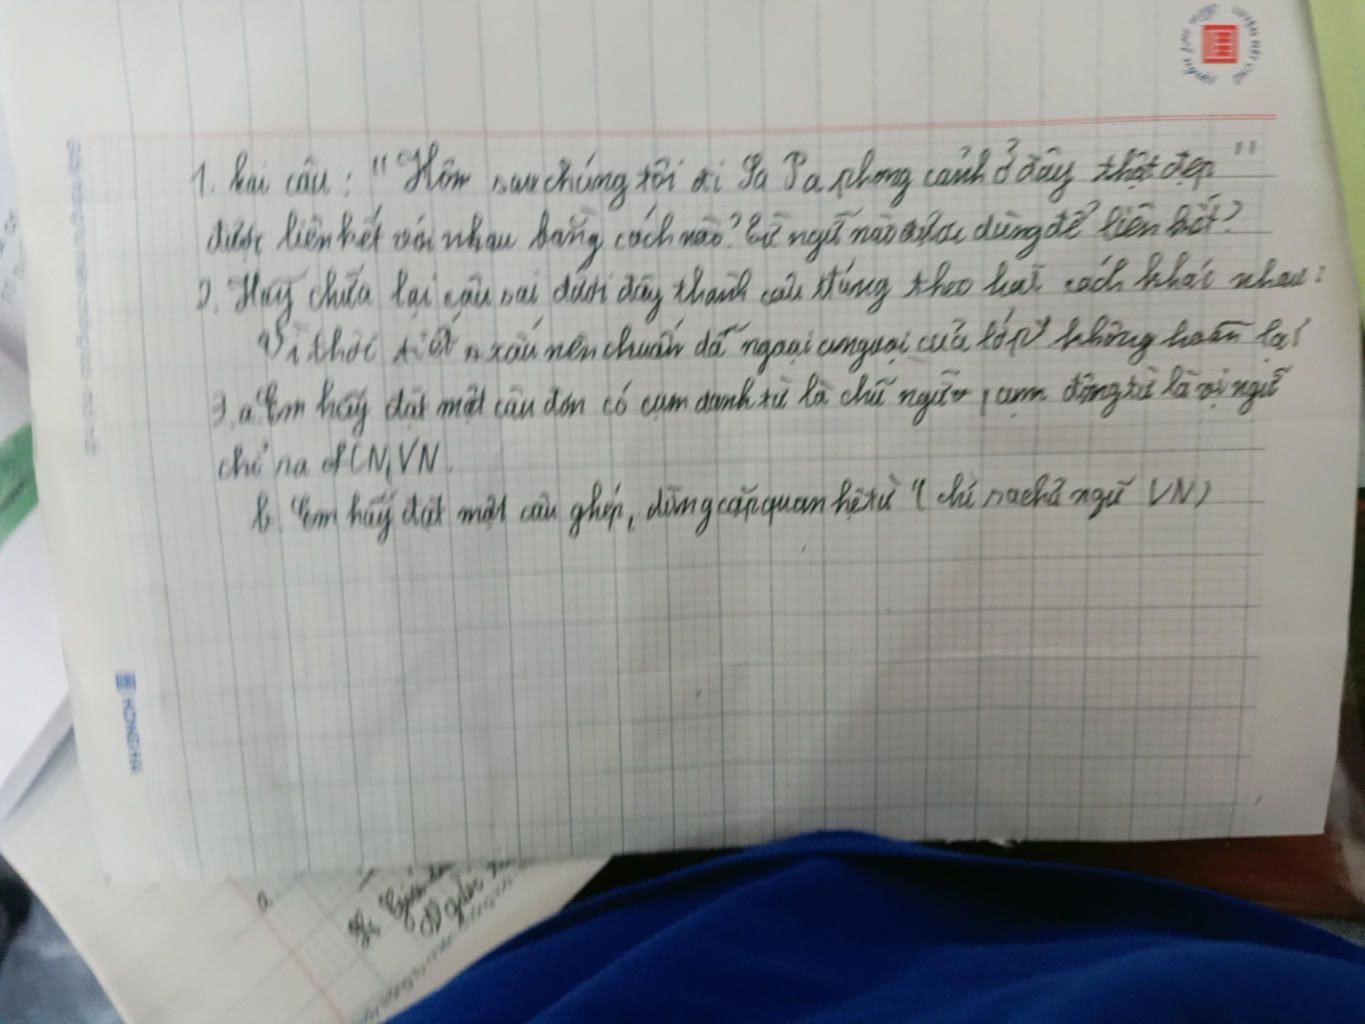 1. hai câu : "Hôm sau chúng tôi đi Sa Pa phong cảnh ở đây thật đẹp"
được liên kết với nhau bằng cách nào? Từ ngữ nào được dùng để liên kết?
2. Hãy chữa lại câu sai dưới đây thành câu đúng theo hai cách khác nhau:
Vì thời tiết xấu nên chuến dã ngoại của lớp không hoãn lại
3. a. Em hãy đặt một câu đơn có cụm danh từ là chủ ngữ, cụm động từ là vị ngữ
chỉ ra CN, VN.
b. Em hãy đặt một câu ghép, dùng cặp quan hệ từ (chỉ ra chủ ngữ VN)